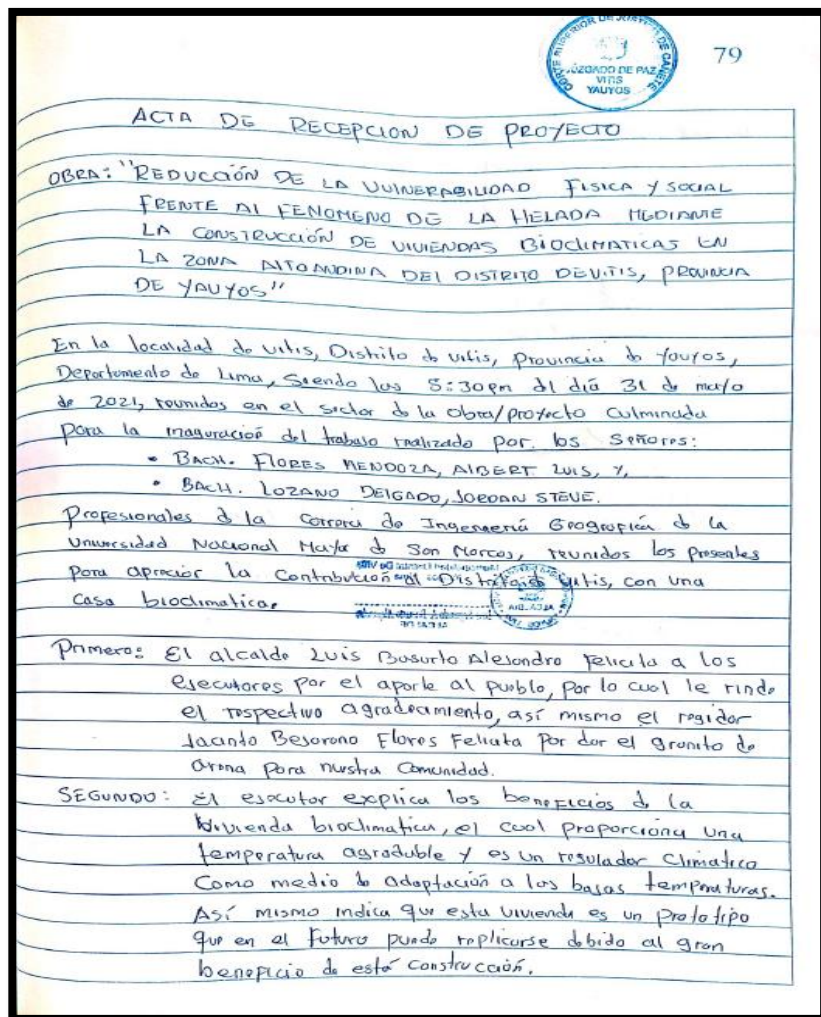 CORTE SUPERIOR DE JUSTICIA DE CAÑETE
JUZGADO DE PAZ
VITIS
YAUYOS
79
ACTA DE RECEPCION DE PROYECTO
OBRA: "REDUCCIÓN DE LA VULNERABILIDAD FISICA Y SOCIAL
FRENTE AL FENOMENO DE LA HELADA MEDIANTE
LA CONSTRUCCIÓN DE VIVIENDAS BIOCLIMATICAS EN
LA ZONA ALTOANDINA DEL DISTRITO DE VITIS, PROVINCIA
DE YAUYOS"
En la localidad de vitis, Distrito de vitis, provincia de Yauyos,
Departamento de Lima, Siendo las 5:30pm del día 31 de mayo
de 2021, reunidos en el sector de la obra/proyecto culminada
para la inaguración del trabajo realizado por los Señores:
• BACH. FLORES MENDOZA, ALBERT LUIS, Y,
• BACH. LOZANO DELGADO, JORDAN STEVE.
Profesionales de la Carrera de Ingeneería Geografica de la
Universidad Nacional Mayor de San Marcos, reunidos los presentes
para apreciar la Contribución al Distrito de Vitis, con una
casa bioclimatica.
ALCALDIA
Primero: El alcalde Luis Basurto Alejandro felicita a los
ejecutores por el aporte al pueblo, por lo cual le rinde
el respectivo agradecimiento, así mismo el regidor
Jacinto Besorono Flores Felicita por dar el granito de
arena para nuestra Comunidad.
SEGUNDO: El ejecutor explica los beneficios de la
Vivienda bioclimatica, el cual proporciona una
temperatura agradable y es un regulador climatico
Como medio de adaptación a las bajas temperaturas.
Así mismo indica que esta vivienda es un prototipo
que en el futuro puede replicarse debido al gran
beneficio de está construcción.